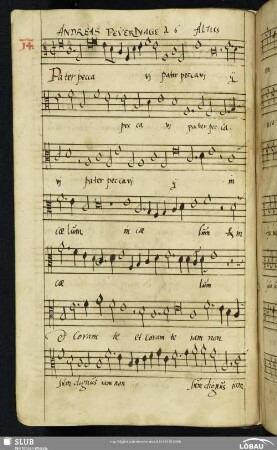 ANDREAS PEVERNAGE à 6 Altus
14
Pater pecca vi pater peccavi ij
pec ca vi pater pecca-
vi pater peccavi ij in
cœlum, in cœ lum & in
cœ lum
et coram te et coram te jam non
sum dignus jam non sum dignus jam
SLUB
LÖBAU